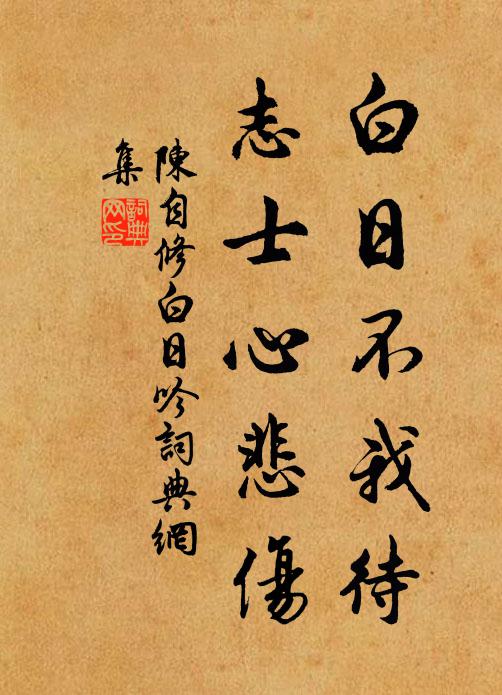 白日不我待
志士心悲傷
陳自修白日吟詞典網
集
詞典
网印